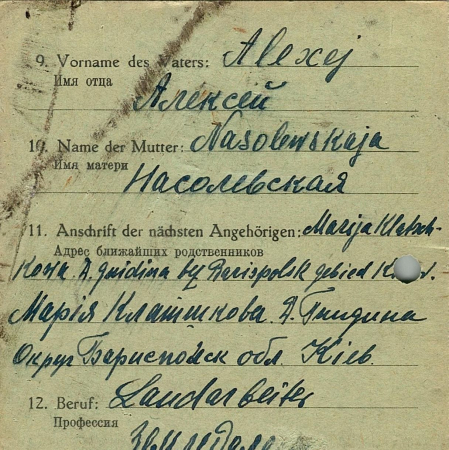 9. Vorname des Vaters: Alexej
Имя отца
Алексей
10. Name der Mutter: Nasolewskaja
Имя матери
Насолевская
11. Anschrift der nächsten Angehörigen: Marija Klatsch-
Адрес ближайших родственников
kowa D. gnidina by Barispolsk gebied
Марія Клатшкова. Д. Гнидина
Округ Бариспольск обл. Кіев.
12. Beruf: Landarbeiter
Профессия